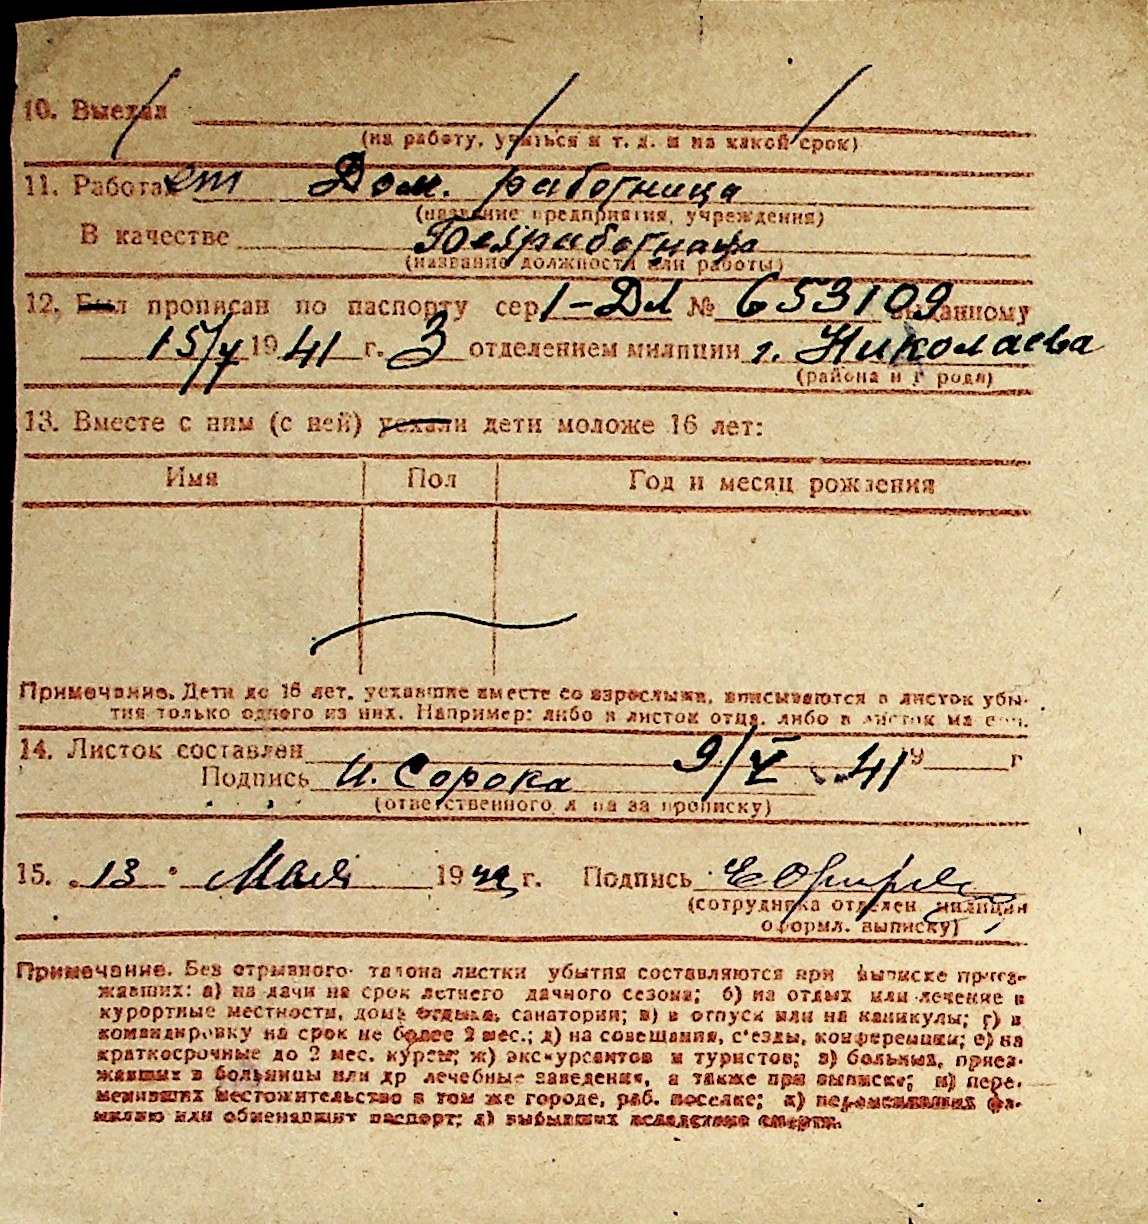 10. Выехал
(на работу, учиться и т. д. и на какой срок)
11. Работает Дом. работница
(название предприятия, учреждения)
В качестве
(название должности или работы)
12. Был прописан по паспорту сер 1-ДЛ № 653109 выданному
15/V 1941 г. 3 отделением милиции г. Николаева
(района и города)
13. Вместе с ним (с ней) уехали дети моложе 16 лет:
Имя Пол Год и месяц рождения
Примечание. Дети до 16 лет, уехавшие вместе со взрослыми, вписываются в листок убы-
тия только одного из них. Например: либо в листок отца, либо в листок матери.
14. Листок составлен 9/V 41 г
Подпись И. Сорока
(ответственного лица за прописку)
15. „13" Мая 1941 г. Подпись
(сотрудника отделен. милиции
оформл. выписку)
Примечание. Без отрывного талона листки убытия составляются при выписке приез-
жавших: а) на дачи на срок летнего дачного сезона; б) на отдых или лечение в
курортные местности, дома отдыха, санатории; в) в отпуск или на каникулы; г) в
командировку на срок не более 2 мес.; д) на совещания, с'езды, конференции; е) на
краткосрочные до 2 мес. курсы; ж) экскурсантов и туристов; з) больных, приез-
жавших в больницы или др лечебные заведения, а также при выписке; и) пере-
менивших местожительство в том же городе, раб. поселке; к) переменивших фа-
милию или обменявших паспорт; л) выбывших вследствие смерти.